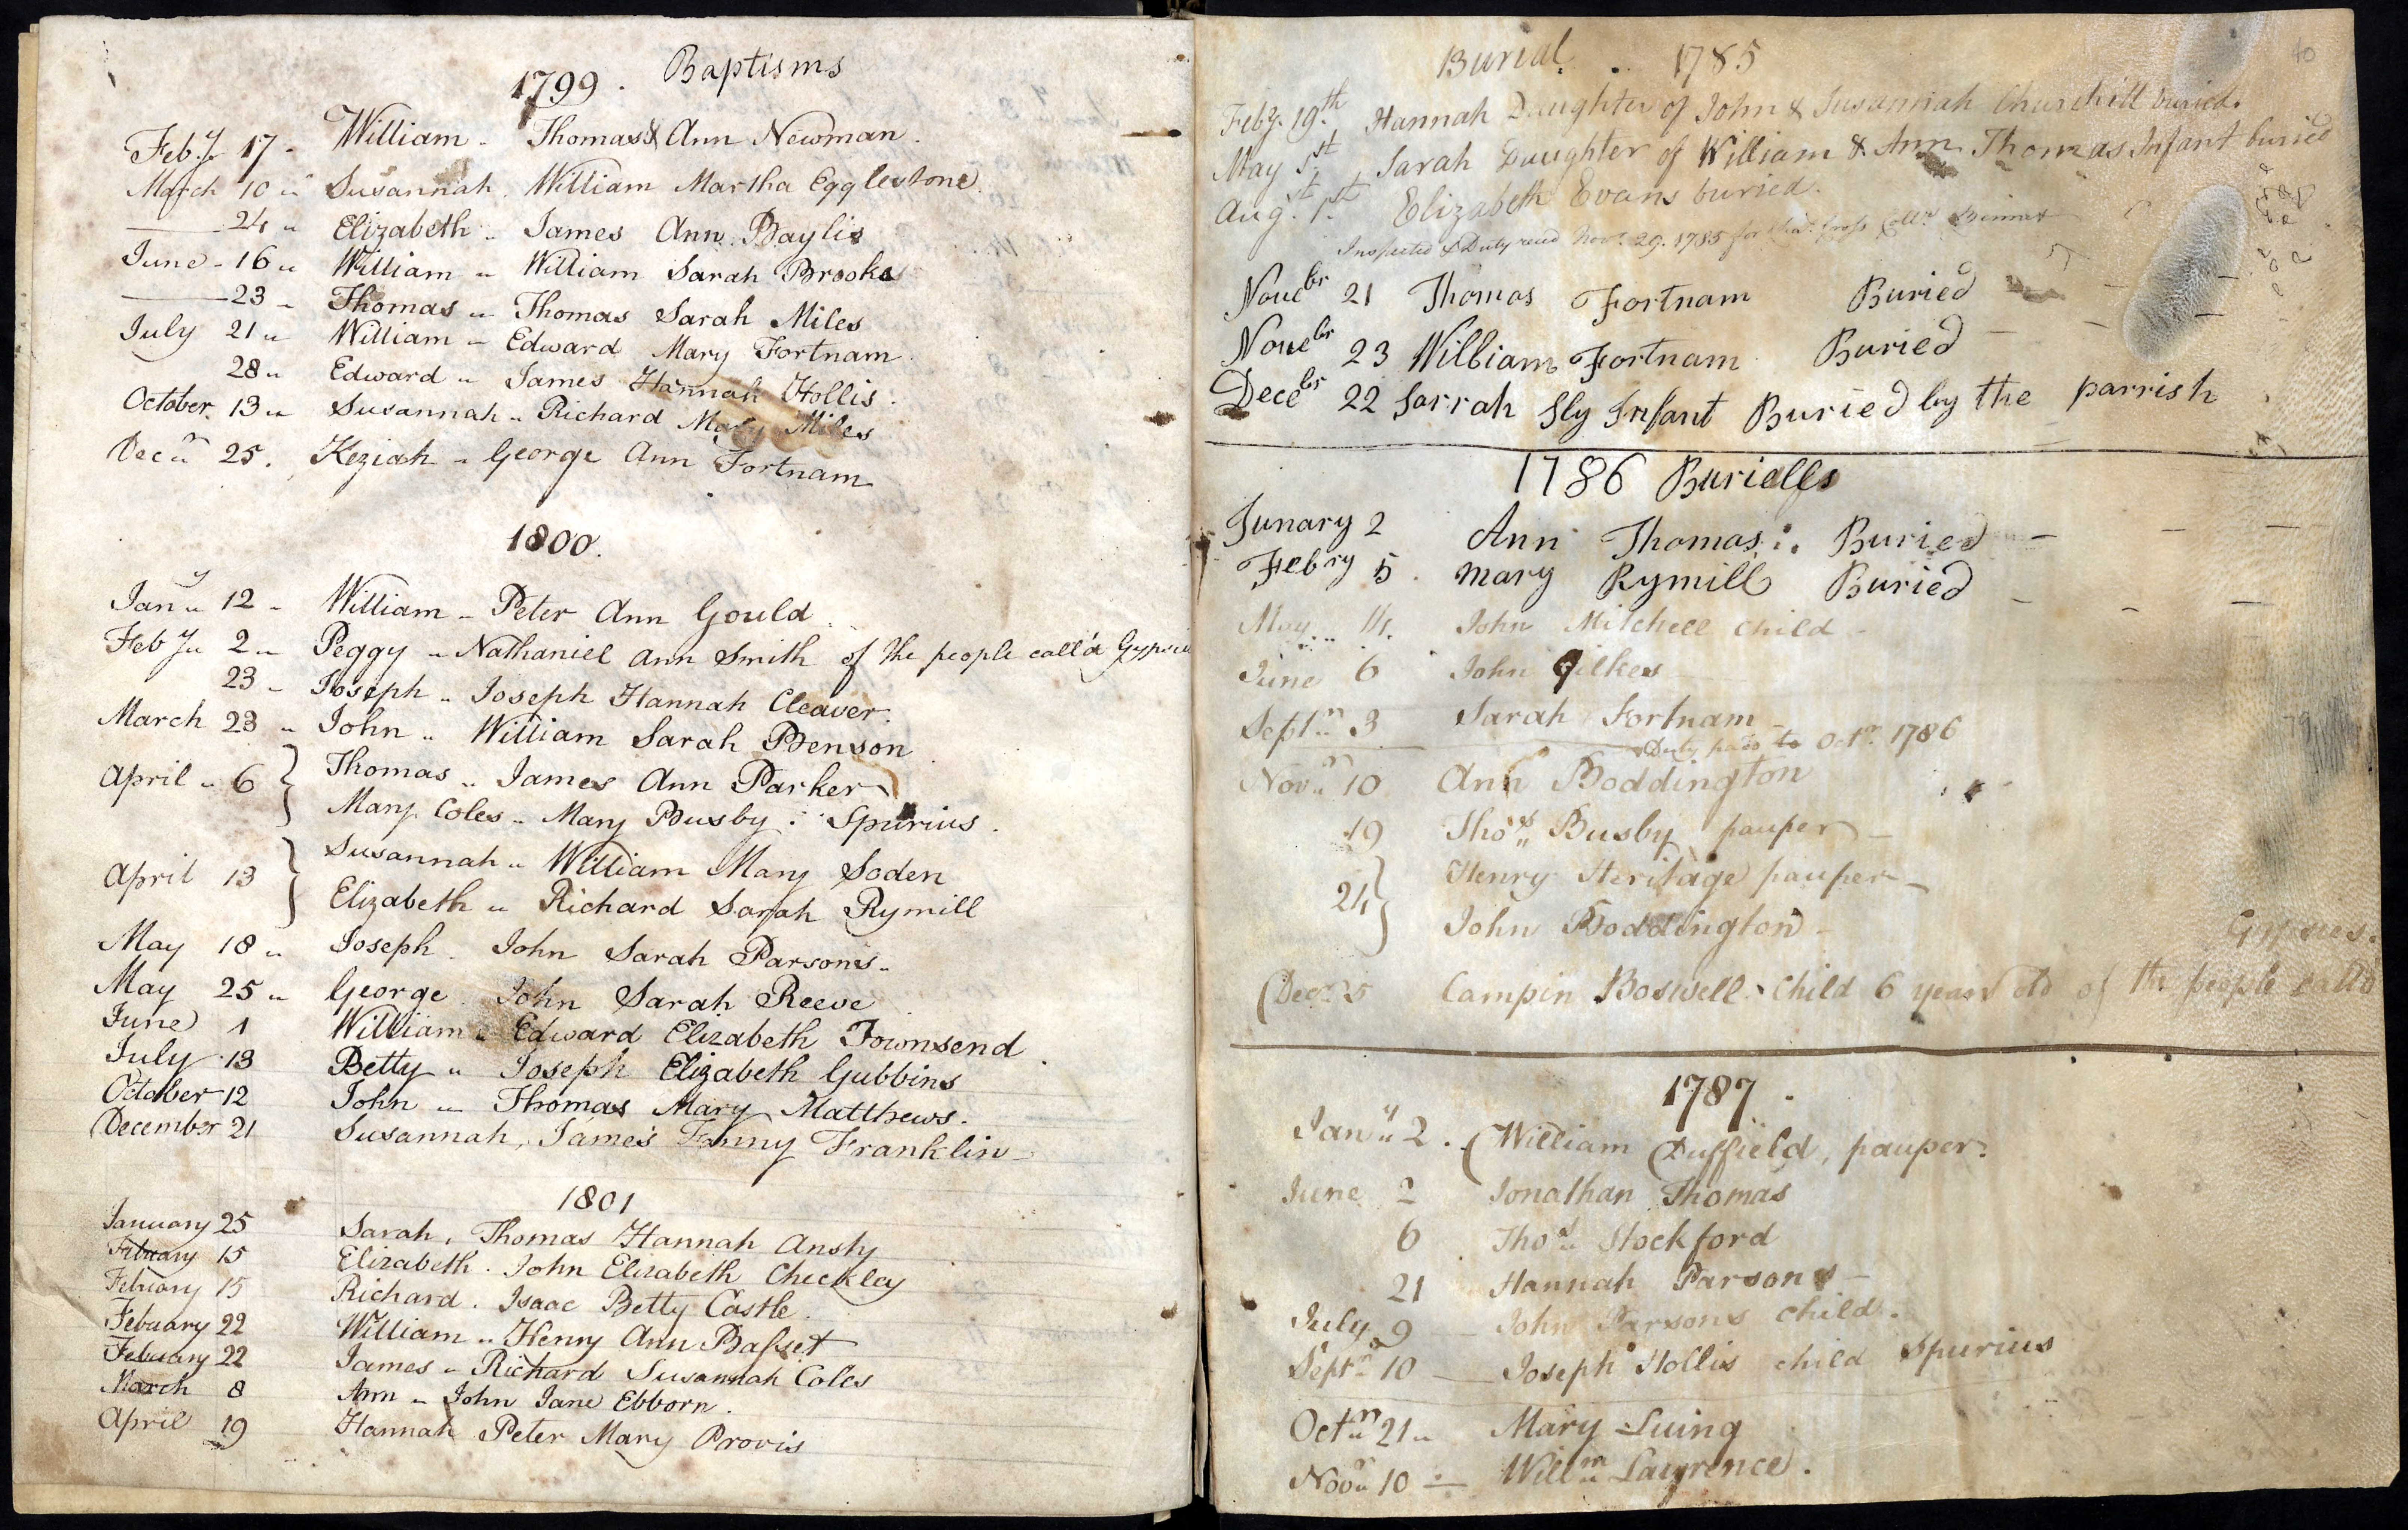 Baptisms
1799.
Feb.y 17 - William - Thomas & Ann Newman.
March 10 " Susannah. William Martha Egglestone.
24 " Elizabeth " James Ann Baylis
June - 16 " William " William Sarah Brooks
23 - Thomas " Thomas Sarah Miles
July 21 " William - Edward Mary Fortnam.
28 " Edward " James Hannah Hollis.
October 13 " Susannah " Richard Mary Miles
Dec.r 25. Keziah - George Ann Fortnam
1800.
Jan.y 12 - William - Peter Ann Gould.
Feb.y 2 " Peggy " Nathaniel Ann Smith of the people call'd Gypsies
23 - Joseph " Joseph Hannah Cleaver.
March 23 " John " William Sarah Benson
April " 6 } Thomas " James Ann Parker
Mary Coles - Mary Busby : Spurius.
April 13 } Susannah " William Mary Soden
Elizabeth " Richard Sarah Rymill
May 18 " Joseph. John Sarah Parsons "
May 25 " George. John Sarah Reeve
June 1 William " Edward Elizabeth Townsend
July 13 Betty " Joseph Elizabeth Gubbins
October 12 John " Thomas Mary Matthews.
December 21 Susannah, James Fanny Franklin
1801
January 25 Sarah, Thomas Hannah Ansty
Febuary 15 Elizabeth. John Elizabeth Checkley
Febuary 15 Richard. Isaac Betty Castle.
Febuary 22 William " Henry Ann Basset
Febuary 22 James " Richard Susannah Coles
March 8 Ann " John Jane Ebborn.
April 19 Hannah Peter Mary Provis
40
Burial .. 1785
Feby. 19.th Hannah Daughter of John & Susannah Churchill buried.
May 1st Sarah Daughter of William & Ann Thomas Infant buried
Aug.st 1.st Elizabeth Evans buried.
Inspected & Duty recd Nov.r 29. 1785 for
Novebr 21 Thomas Fortnam Buried
Novebr 23 William Fortnam Buried
Decebr 22 Sarrah Sly Infant Buried by the parrish
1786 Burialls
Junary 2 Ann Thomas :. Buried
Febry 5. Mary Rymill Buried
May 14. John Mitchell child -
June 6 John Gilkes
Sept.r 3 Sarah Fortnam -
Duty paid to Oct.r 1786
Nov.r 10 Ann Boddington
19 Tho.s Busby pauper -
24 } Henry Heritage pauper -
John Boddington -
Gypsies.
Dec.r 5 Campin Boswell child 6 years old of the people calld
1787.
Jan.y 2. William Duffield, pauper.
June 2 Jonathan Thomas
6 Tho.s Stockford
21 Hannah Parsons -
July 9 John Parsons child.
Sept.r 10 Joseph Hollis child Spurius
Oct.r 21 " Mary Luing
Nov.r 10 - Will.m Lawrence.